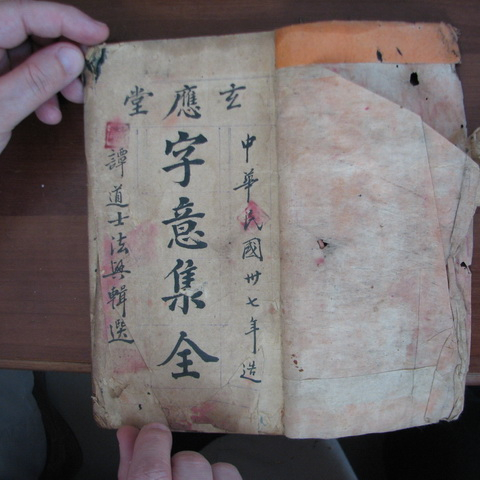 玄應堂
中華民國卅七年造
字意集全
譚道士法興輯選